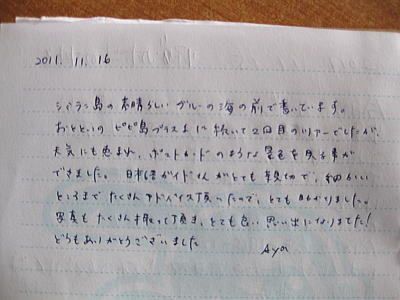 2011.11.16
シミラン島の素晴らしいブルーの海の前で書いています。
おとといのピピ島プラスに続いて2回目のツアーでしたが、
天気にも恵まれ、ポストカードのような景色を見る事が
できました。日本語ガイドさんがとても親切で、細かい
ところまでたくさんアドバイス頂ったので、とても助かりました。
写真もたくさん撮って頂き、とても良い思い出になりました!
どうもありがとうございました
Aya